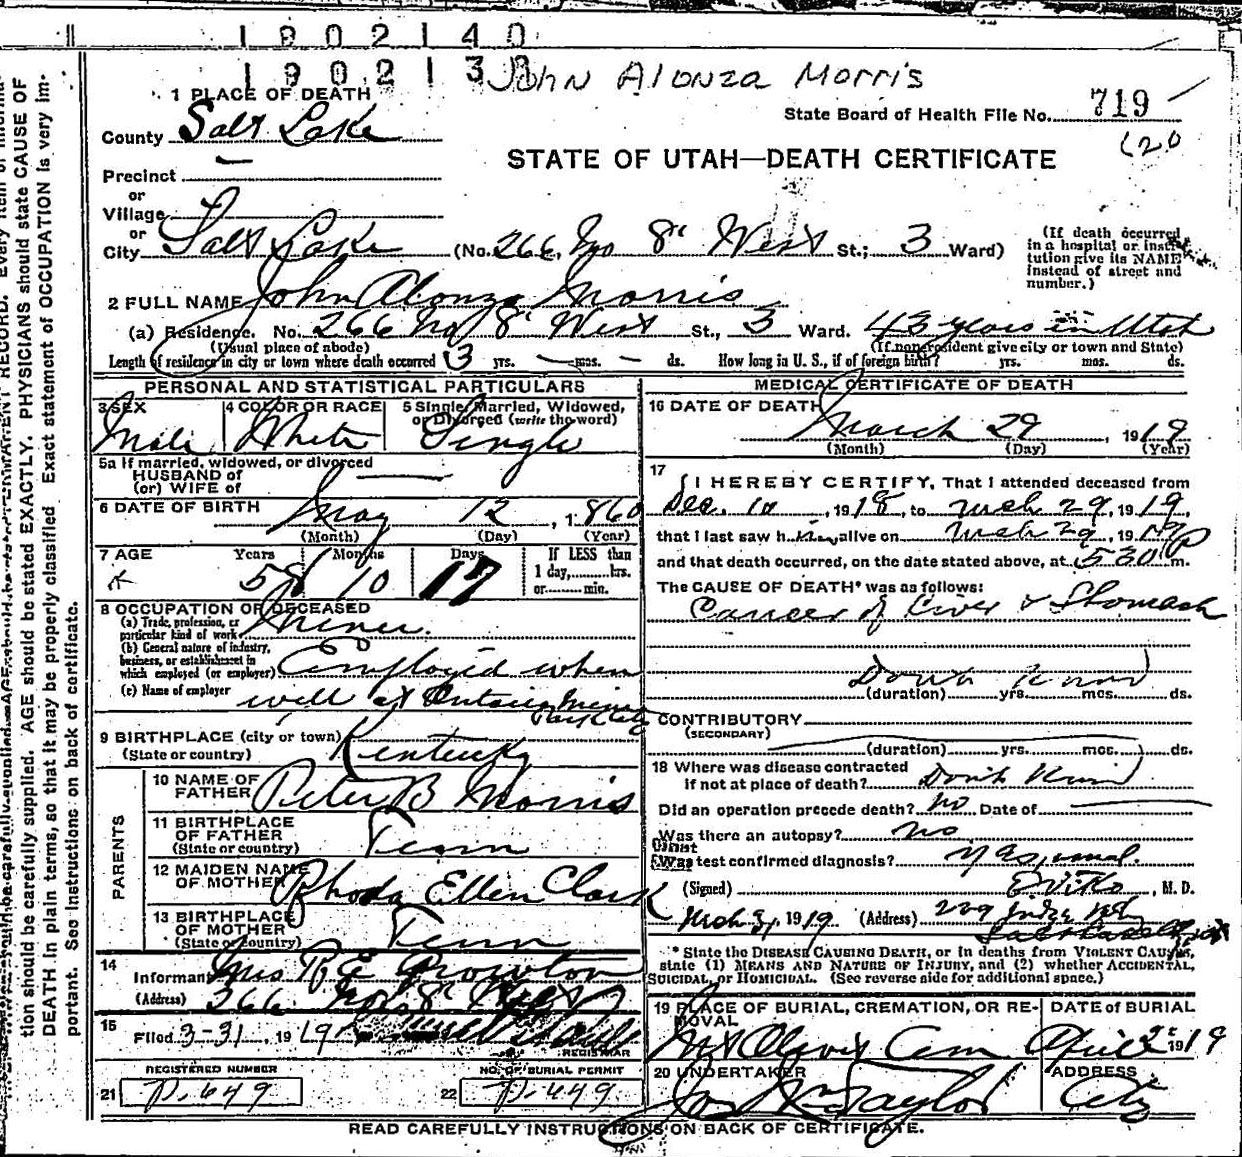 1902140
190213
John Alonza Morris
1 PLACE OF DEATH
State Board of Health File No. 719
620
County Salt Lake
STATE OF UTAH—DEATH CERTIFICATE
Precinct —
or
Village
or
City Salt Lake (No. 266 No 8" West St.; 3 Ward)
(If death occurred in a hospital or institution give its NAME instead of street and number.)
2 FULL NAME John Alonzo Morris
(a) Residence. No. 266 No 8" West St., 3 Ward. 43 years in Utah
(Usual place of abode) (If nonresident give city or town and State)
Length of residence in city or town where death occurred 3 yrs. — mos. — ds. How long in U. S., if of foreign birth? yrs. mos. ds.
PERSONAL AND STATISTICAL PARTICULARS
3 SEX Male
4 COLOR OR RACE White
5 Single, Married, Widowed, or Divorced (write the word) Single
5a If married, widowed, or divorced
HUSBAND of
(or) WIFE of —
6 DATE OF BIRTH May 12, 1860
(Month) (Day) (Year)
7 AGE Years Months Days If LESS than
58 10 17 1 day,......hrs.
or......min.
8 OCCUPATION OF DECEASED
(a) Trade, profession, or particular kind of work Miner.
(b) General nature of industry, business, or establishment in which employed (or employer) Employed when
(c) Name of employer well at Ontario Mine
Park City
9 BIRTHPLACE (city or town)
(State or country) Kentucky
PARENTS
10 NAME OF FATHER Peter B Morris
11 BIRTHPLACE OF FATHER
(State or country) Tenn
12 MAIDEN NAME OF MOTHER Rhoda Ellen Clark
13 BIRTHPLACE OF MOTHER
(State or country) Tenn
14
Informant Mrs R E Growton
(Address) 266 No 8" West
15
Filed 3-31, 1919
REGISTRAR
REGISTERED NUMBER
21 P-649
NO. OF BURIAL PERMIT
22 P-449
MEDICAL CERTIFICATE OF DEATH
16 DATE OF DEATH
March 29, 1919
(Month) (Day) (Year)
17
I HEREBY CERTIFY, That I attended deceased from
Dec. 10, 1918, to Mch 29, 1919
that I last saw him alive on Mch 29, 1919
and that death occurred, on the date stated above, at 530 P m.
The CAUSE OF DEATH* was as follows:
Cancer of Liver & Stomach
Don't Know
(duration) yrs. mos. ds.
CONTRIBUTORY
(SECONDARY)
(duration) yrs. mos. ds.
18 Where was disease contracted
if not at place of death? Don't Know
Did an operation precede death? No Date of
Was there an autopsy? No
What test confirmed diagnosis?
(Signed) , M. D.
Mch 31, 1919 (Address) 229 Judge Bldg
Salt Lake City
* State the DISEASE CAUSING DEATH, or in deaths from VIOLENT CAUSES, state (1) MEANS AND NATURE OF INJURY, and (2) whether ACCIDENTAL, SUICIDAL, or HOMICIDAL. (See reverse side for additional space.)
19 PLACE OF BURIAL, CREMATION, OR REMOVAL
Mt Olivet Cem
DATE OF BURIAL
April 2" 1919
20 UNDERTAKER
Taylor
ADDRESS
City
READ CAREFULLY INSTRUCTIONS ON BACK OF CERTIFICATE.
tion should be carefully supplied. AGE should be stated EXACTLY. PHYSICIANS should state CAUSE OF
DEATH in plain terms, so that it may be properly classified. Exact statement of OCCUPATION is very im-
portant. See Instructions on back of certificate.